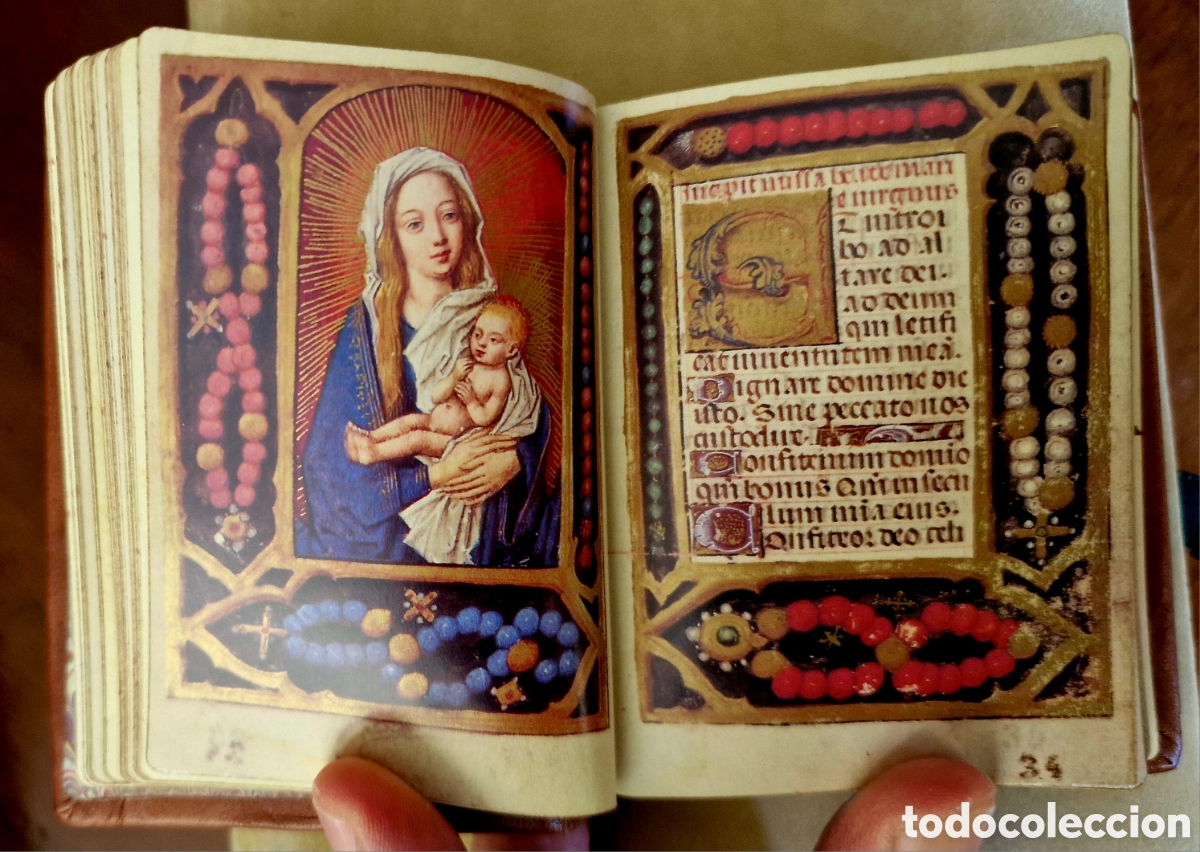 Incipit missa beate marie virginis
Introi
bo ad al
tare dei.
ad deum
qui letifi
cat iuventutem meā.
Dignare domine die
isto. Sine peccato nos
custodire.
Confitemini domino
qm̄ bonus Qm̄ in secu
lum mīa eius.
Confiteor deo celi
34
todocoleccion